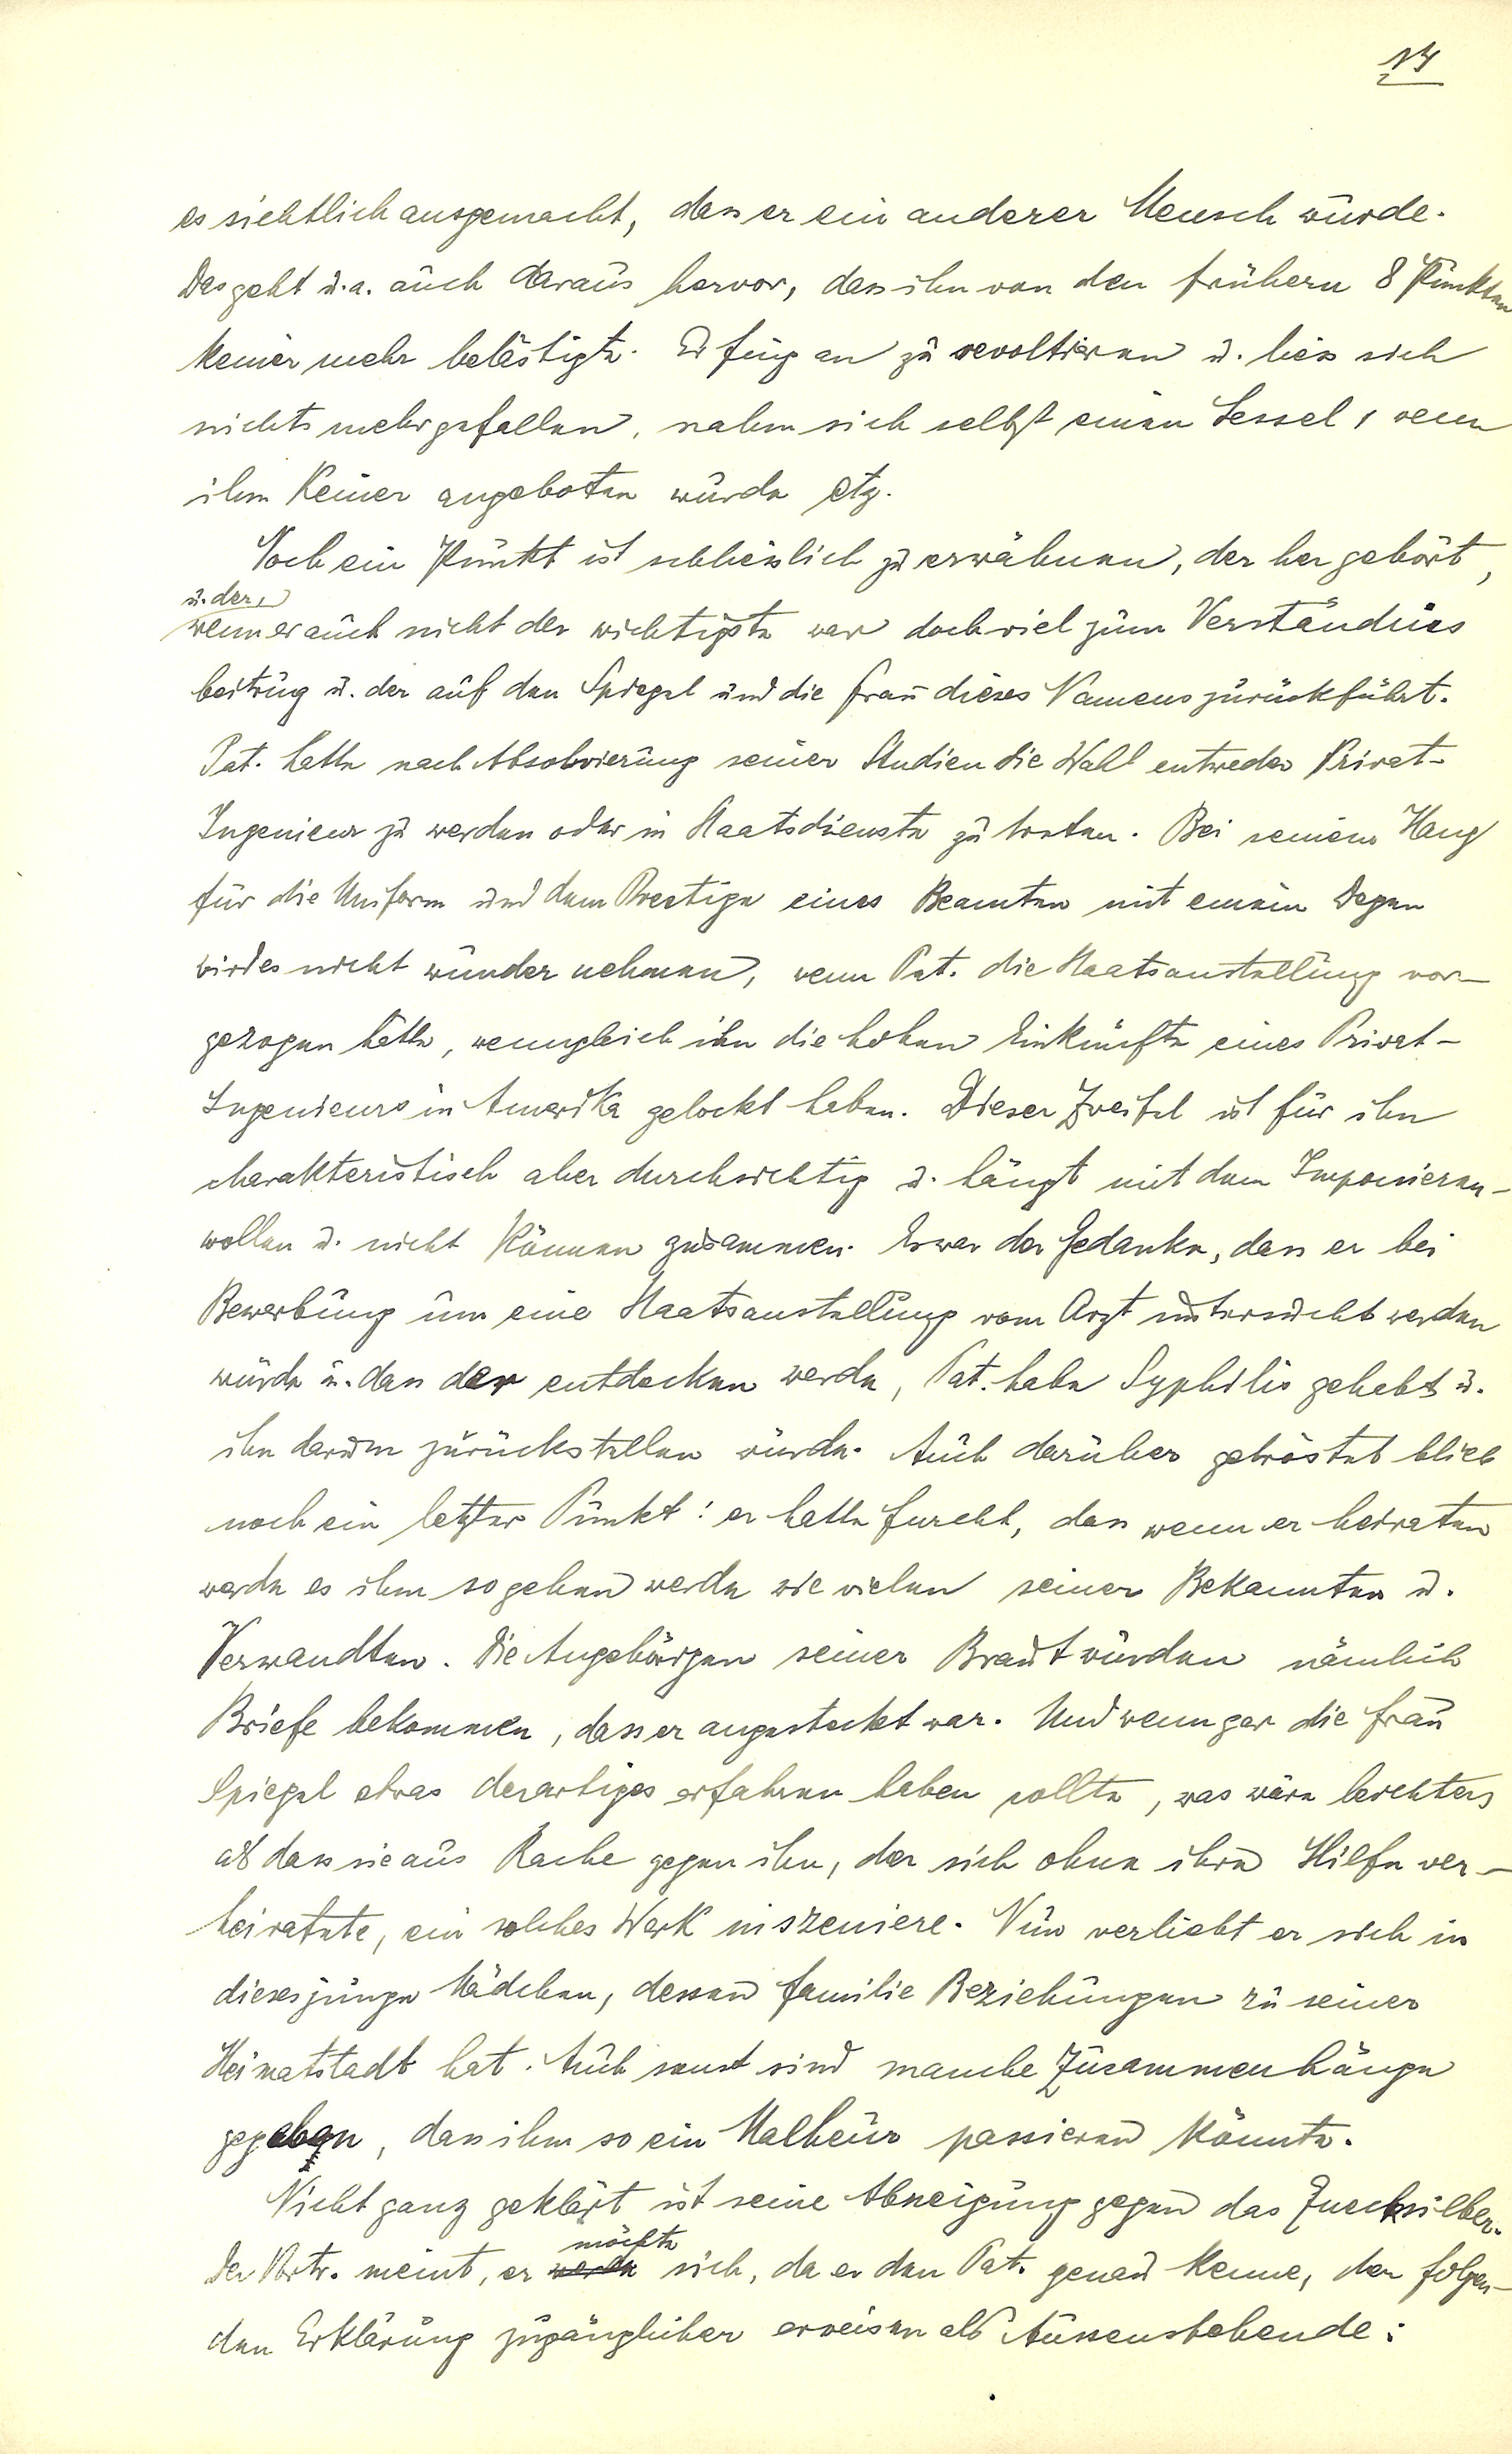 14
es sichtlich ausgemacht, dass er ein anderer Mensch wurde.
Das geht u. a. auch daraus hervor, dass ihn von den frühern 8 Punkten
keiner mehr belästigte. Er fing an zu revoltieren u. liess sich
nichts mehr gefallen, nahm sich selbst einen Sessel, wenn
ihm keiner angeboten wurde etz.
Noch ein Punkt ist schliesslich zu erwähnen, der her gehört,
u. der,
wenn er auch nicht der wichtigste war doch viel zum Verständnis
beitrug u. der auf den Spiegel und die Frau dieses Namens zurückführt.
Pat. hatte nach Absolvierung seiner Studien die Wahl entweder Privat-
Ingenieur zu werden oder in Staatsdienste zu treten. Bei seinem Hang
für die Uniform und dem Prestige eines Beamten mit einem Degen
wird es nicht wunder nehmen, wenn Pat. die Staatsanstellung vor-
gezogen hätte, wenngleich ihn die hohen Einkünfte eines Privat-
Ingenieurs in Amerika gelockt haben. Dieser Zweifel ist für ihn
charakteristisch aber durchsichtig u. hängt mit dem Imponieren-
wollen u. nicht Können zusammen. Es war der Gedanke, dass er bei
Bewerbung um eine Staatsanstellung vom Arzt untersucht werden
würde u. dass der entdecken werde, Pat. habe Syphilis gehabt u.
ihn darum zurückstellen würde. Auch darüber getröstet blieb
noch ein letzter Punkt: er hatte Furcht, dass wenn er heiraten
werde es ihm so gehen werde wie vielen seiner Bekannten u.
Verwandten. Die Angehörigen seiner Braut würden nämlich
Briefe bekommen, dass er angesteckt war. Und wenn gar die Frau
Spiegel etwas derartiges erfahren haben sollte, was wäre leichters
als dass sie aus Rache gegen ihn, der sich ohne ihre Hilfe ver-
heiratete, ein solches Werk inszeniere. Nun verliebt er sich in
dieses junge Mädchen, dessen Familie Beziehungen zu seiner
Heimatstadt hat. Auch sonst sind manche Zusammenhänge
gegeben, dass ihm so ein Malheur passieren könnte.
Nicht ganz geklärt ist seine Abneigung gegen das Quecksilber.
möchte
Der Vortr. meint, er werde sich, da er den Pat. genau kenne, der folgen-
den Erklärung zugänglicher erweisen als Aussenstehende: